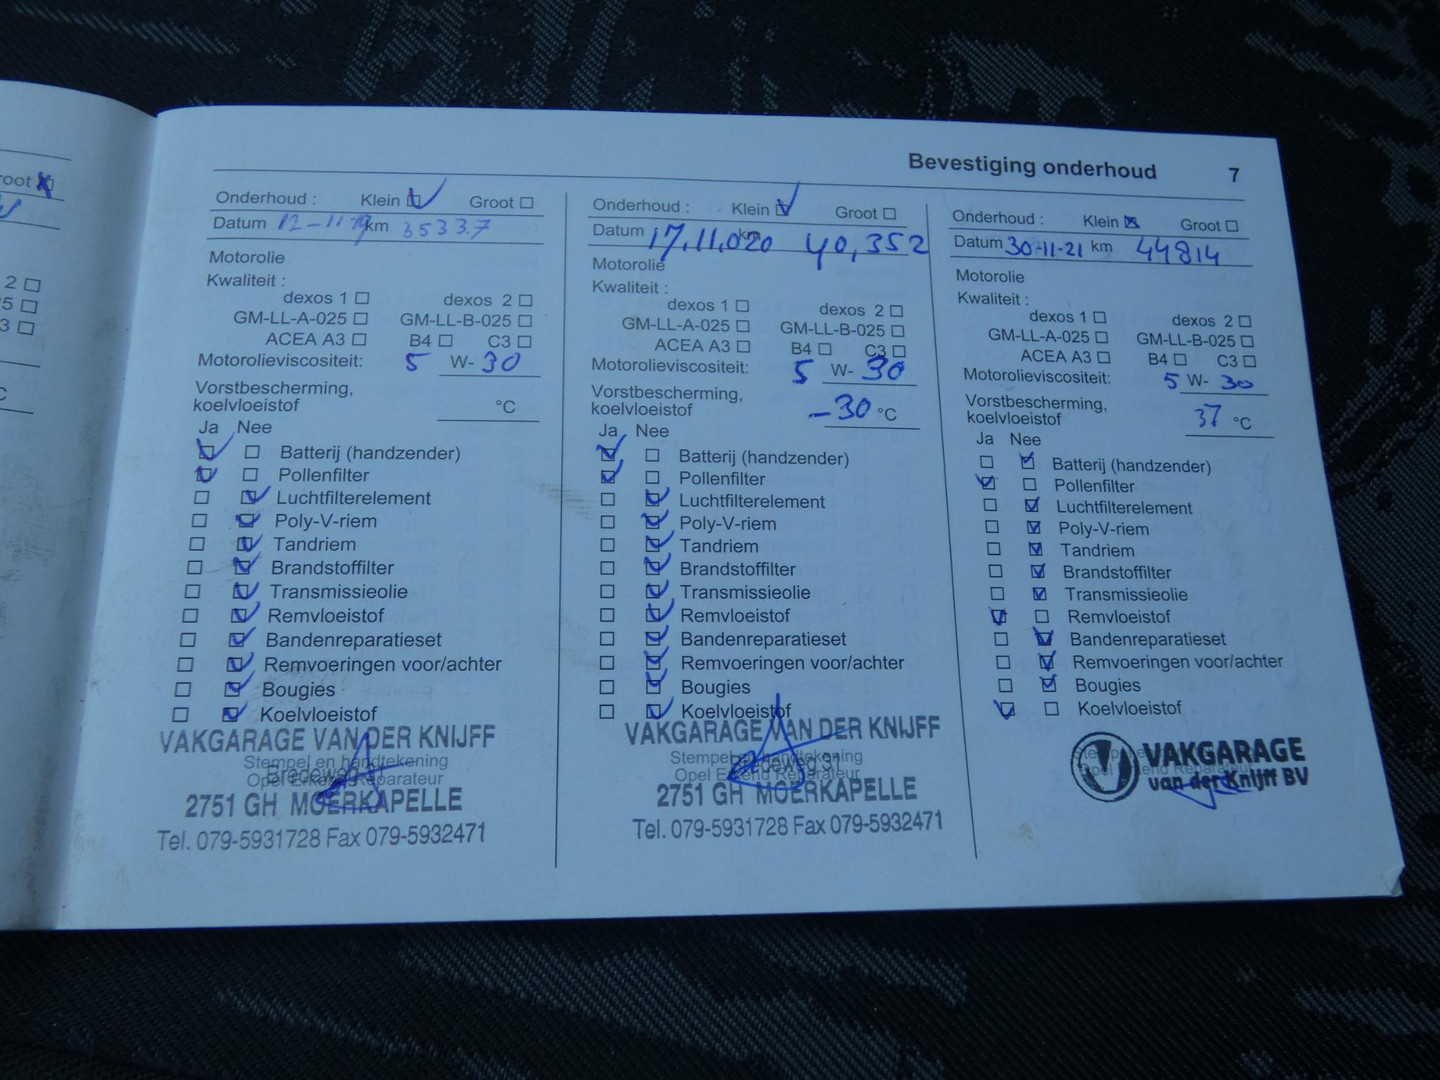 Bevestiging onderhoud 7
root
2
5
3
C
Onderhoud : Klein Groot
Datum 12-11-19 km 35337
Motorolie
Kwaliteit :
dexos 1 dexos 2
GM-LL-A-025 GM-LL-B-025
ACEA A3 B4 C3
Motorolieviscositeit: 5 W- 30
Vorstbescherming,
koelvloeistof °C
Ja Nee
Batterij (handzender)
Pollenfilter
Luchtfilterelement
Poly-V-riem
Tandriem
Brandstoffilter
Transmissieolie
Remvloeistof
Bandenreparatieset
Remvoeringen voor/achter
Bougies
Koelvloeistof
VAKGARAGE VAN DER KNIJFF
Stempel en handtekening
Bredeweg 31
Opel Erkend Reparateur
2751 GH MOERKAPELLE
Tel. 079-5931728 Fax 079-5932471
Onderhoud : Klein Groot
Datum 17.11.020 km 40,352
Motorolie
Kwaliteit :
dexos 1 dexos 2
GM-LL-A-025 GM-LL-B-025
ACEA A3 B4 C3
Motorolieviscositeit: 5 W- 30
Vorstbescherming,
koelvloeistof -30 °C
Ja Nee
Batterij (handzender)
Pollenfilter
Luchtfilterelement
Poly-V-riem
Tandriem
Brandstoffilter
Transmissieolie
Remvloeistof
Bandenreparatieset
Remvoeringen voor/achter
Bougies
Koelvloeistof
VAKGARAGE VAN DER KNIJFF
Stempel en handtekening
Bredeweg 31
Opel Erkend Reparateur
2751 GH MOERKAPELLE
Tel. 079-5931728 Fax 079-5932471
Onderhoud : Klein Groot
Datum 30-11-21 km 44814
Motorolie
Kwaliteit :
dexos 1 dexos 2
GM-LL-A-025 GM-LL-B-025
ACEA A3 B4 C3
Motorolieviscositeit: 5 W- 30
Vorstbescherming,
koelvloeistof 37 °C
Ja Nee
Batterij (handzender)
Pollenfilter
Luchtfilterelement
Poly-V-riem
Tandriem
Brandstoffilter
Transmissieolie
Remvloeistof
Bandenreparatieset
Remvoeringen voor/achter
Bougies
Koelvloeistof
VAKGARAGE
van der Knijff BV